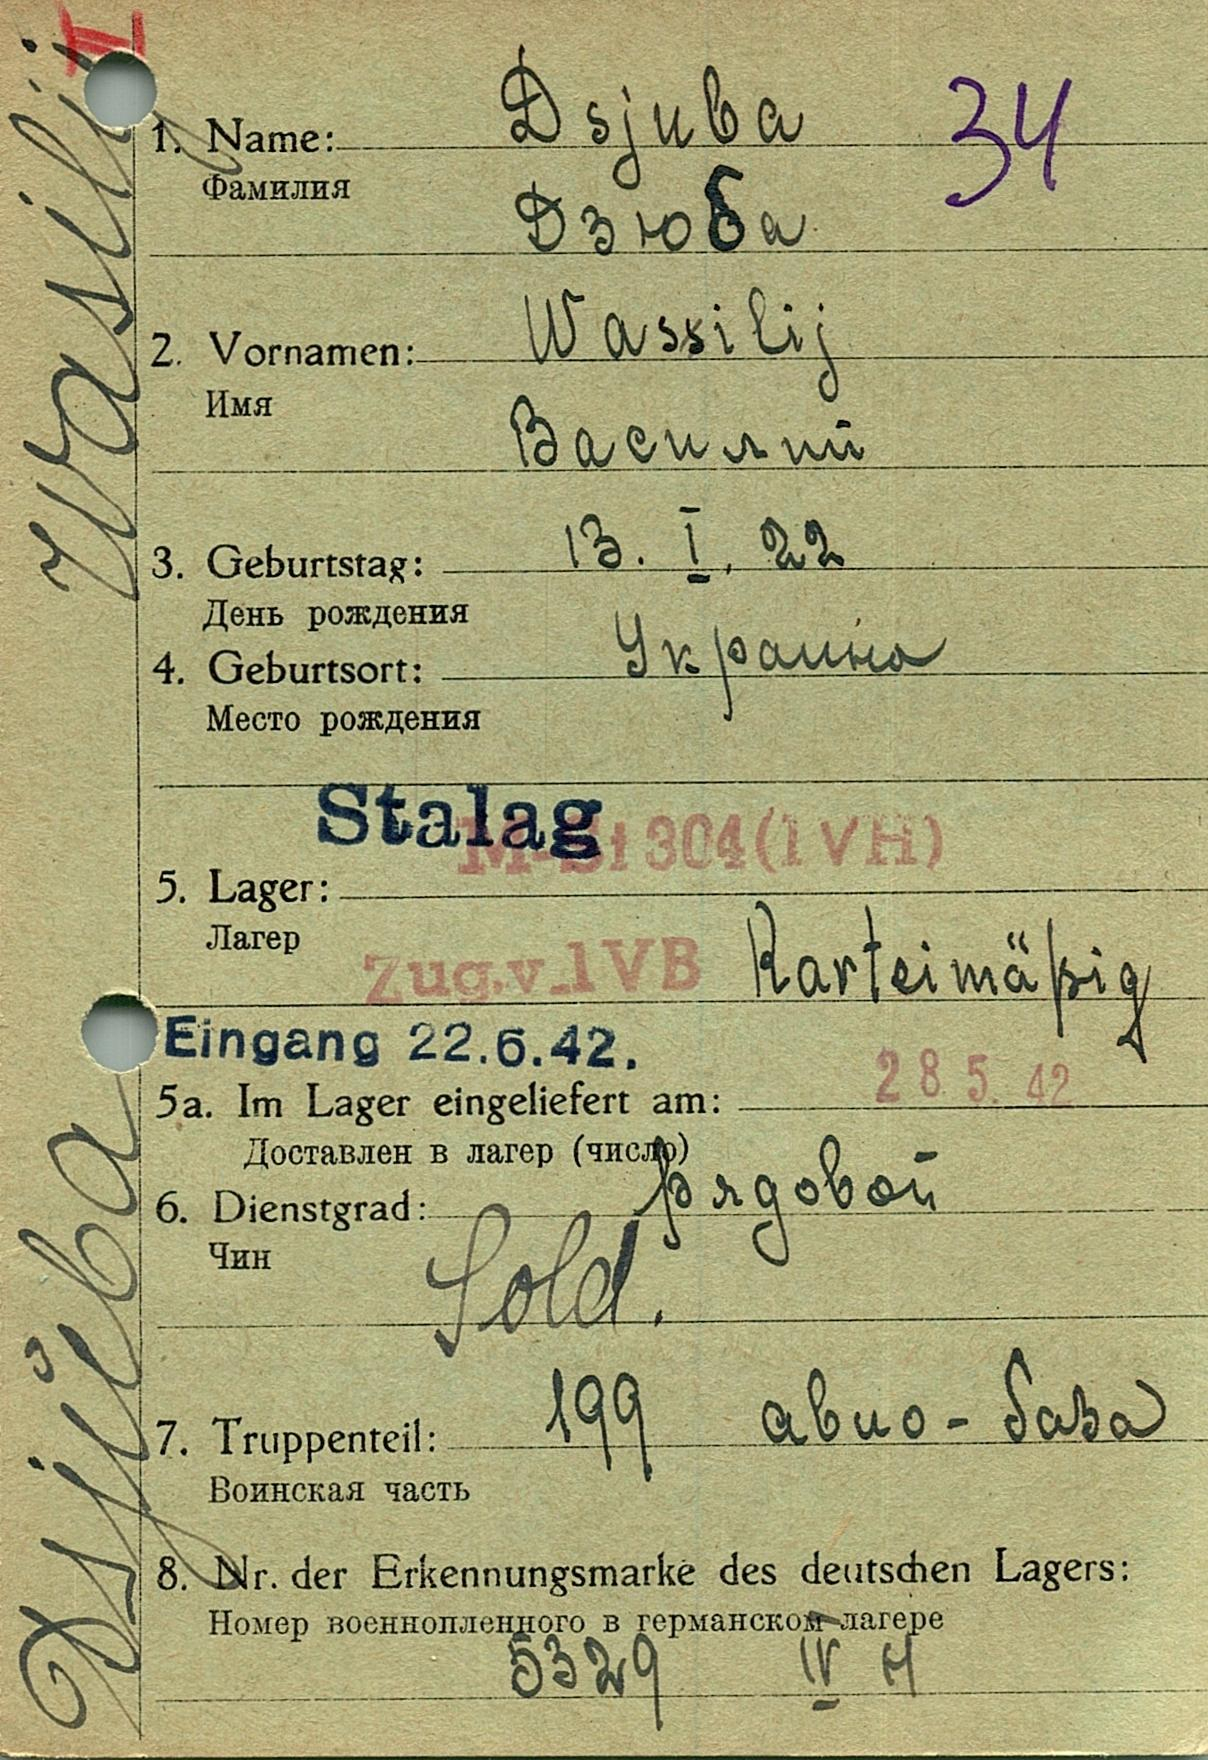 I
Wasilij
Dsjuba
1. Name: Dsjuba 34
Фамилия
Дзюба
2. Vornamen: Wassilij
Имя
Василий
3. Geburtstag: 13. I. 22
День рождения
4. Geburtsort: Украина
Место рождения
Stalag
M-St 304 (IVH)
5. Lager:
Лагер
Zug.v. IVB Karteimäßig
Eingang 22.6.42.
28 5. 42
5a. Im Lager eingeliefert am:
Доставлен в лагер (число)
6. Dienstgrad: рядовой
Чин
Sold.
7. Truppenteil: 199 авио-база
Воинская часть
8. Nr. der Erkennungsmarke des deutschen Lagers:
Номер военнопленного в германском лагере
5329 IV H